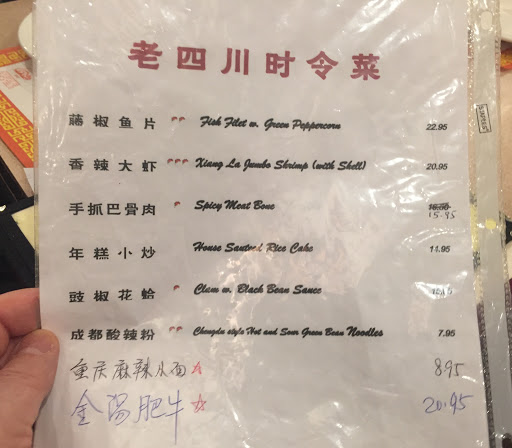 老四川时令菜
藤椒鱼片 Fish Filet w. Green Peppercorn 22.95
香辣大虾 Xiang La Jumbo Shrimp (with Shell) 20.95
手抓巴骨肉 Spicy Meat Bone 15.95
年糕小炒 House Sauteed Rice Cake 14.95
豉椒花蛤 Clam w. Black Bean Sauce
成都酸辣粉 Chengdu style Hot and Sour Green Bean Noodles 7.95
重庆麻辣小面 8.95
金汤肥牛 20.95